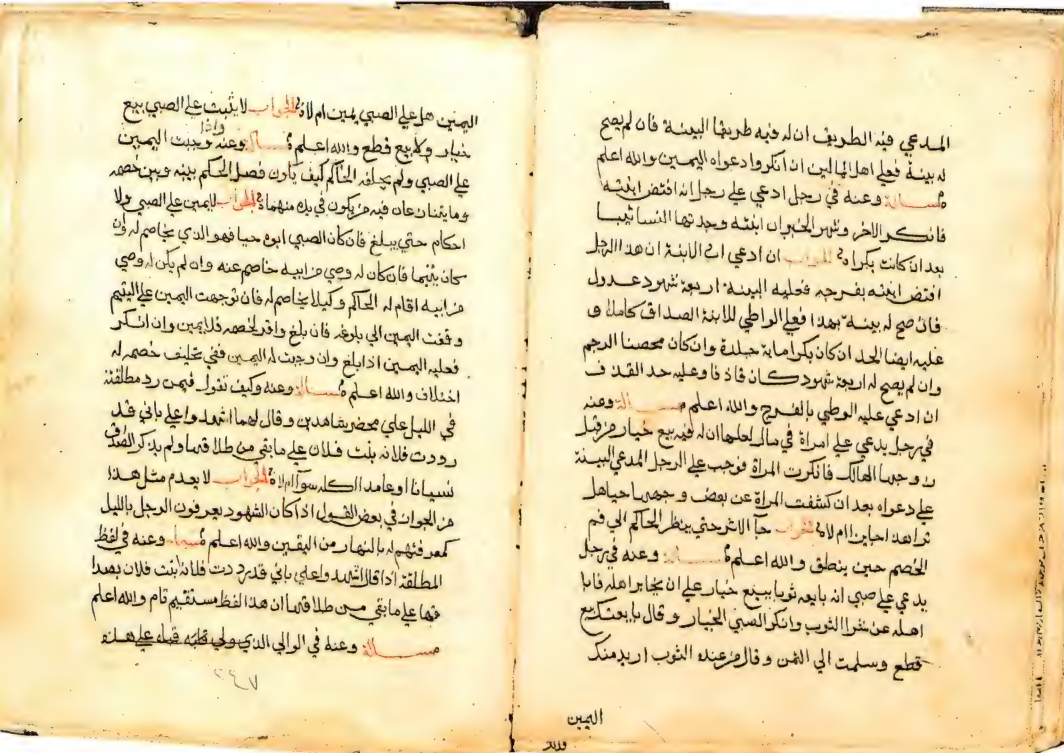 المدعي فيه الطريف ان له فيه طريقا البينة فان لم يصح
له بينة فعلى اهل المالين ان انكروا دعواه اليمين والله اعلم
مسالة وعنه في رجل ادعي علي رجل انه افتض ابنته
فانكر الاخر وشهر الخبر ان ابنته وجدتها النسا ثيبا
بعد ان كانت بكرا الجواب ان ادعي اب الابنة ان هذا الرجل
افتض ابنته بفرجه فعليه البينة اربعة شهود عدول
فان صح له بينة بهذا فعلي الواطي للابنة الصداق كاملا و
عليه ايضا الحد ان كان بكرا ماية جلدة وان كان محصنا الرجم
وان لم يصح له اربعة شهود كان قاذفا وعليه حد القذف
ان ادعي عليه الوطي بالفرج والله اعلم مسالة وعنه
في رجل يدعي علي امراة في مال له فيه بيع خيار من قبل
زوجها الهالك فانكرت المراة فوجب علي الرجل المدعي البينة
علي دعواه بعد ان كشفت المراة عن بعض وجهها حيا هل
ام لا الجواب حتي ينظر الحاكم الي فم
الخصم حين ينطق والله اعلم مسالة وعنه في رجل
يدعي علي صبي انه بايعه ثوبا ببيع خيار علي ان يخابر اهله فابا
اهله عن شرا الثوب وانكر الصبي الخيار وقال بايعتك بيع
قطع وسلمت الي الثمن وقال من عنده الثوب اريد منك
اليمين
اليمين هل علي الصبي يمين ام لا الجواب لا يثبت علي الصبي بيع
خيار ولا بيع قطع والله اعلم مسالة وعنه واذا وجبت اليمين
علي الصبي ولم يحلفه الحاكم كيف يكون فصل الحكم بينه وبين خصمه
وما يتنازعان فيه من يكون في يده منهما الجواب لا يمين علي الصبي ولا
احكام حتي يبلغ فان كان الصبي ابوه حيا فهو الذي يخاصم له وان
كان يتيما فان كان له وصي من ابيه خاصم عنه وان لم يكن له وصي
من ابيه اقام له الحاكم وكيلا يخاصم له فان توجهت اليمين علي اليتيم
وقفت اليمين الي بلوغه فان بلغ واقر لخصمه فلا يمين وان انكر
فعليه اليمين اذا بلغ وان وجبت له اليمين ففي تحليف خصمه له
اختلاف والله اعلم مسالة وعنه وكيف تقول فيمن رد مطلقته
في الليل علي محضر شاهدين وقال لهما اشهدوا علي باني قد
رددت فلانة بنت فلان علي ما بقي من طلاقها ولم يذكر الصداق
نسيانا او عامدا اكله سوآ ام لا الجواب لا يعدم مثل هذا
من الجواز في بعض القول اذا كان الشهود يعرفون الرجل بالليل
كمعرفتهم له بالنهار من اليقين والله اعلم مسالة وعنه في لفظ
المطلقة اذا قال اشهدوا علي باني قد رددت فلانة بنت فلان بصدا
قها علي ما بقي من طلاقها ان هذا اللفظ مستقيم تام والله اعلم
مسالة وعنه في الوالي الذي ولي علي هذه
٢٤٧